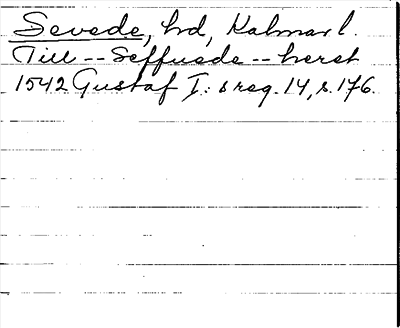 Sevede, hd, Kalmar l.
Till -- Seffuede -- herst
1542 Gustaf I:s reg. 14, s. 176.